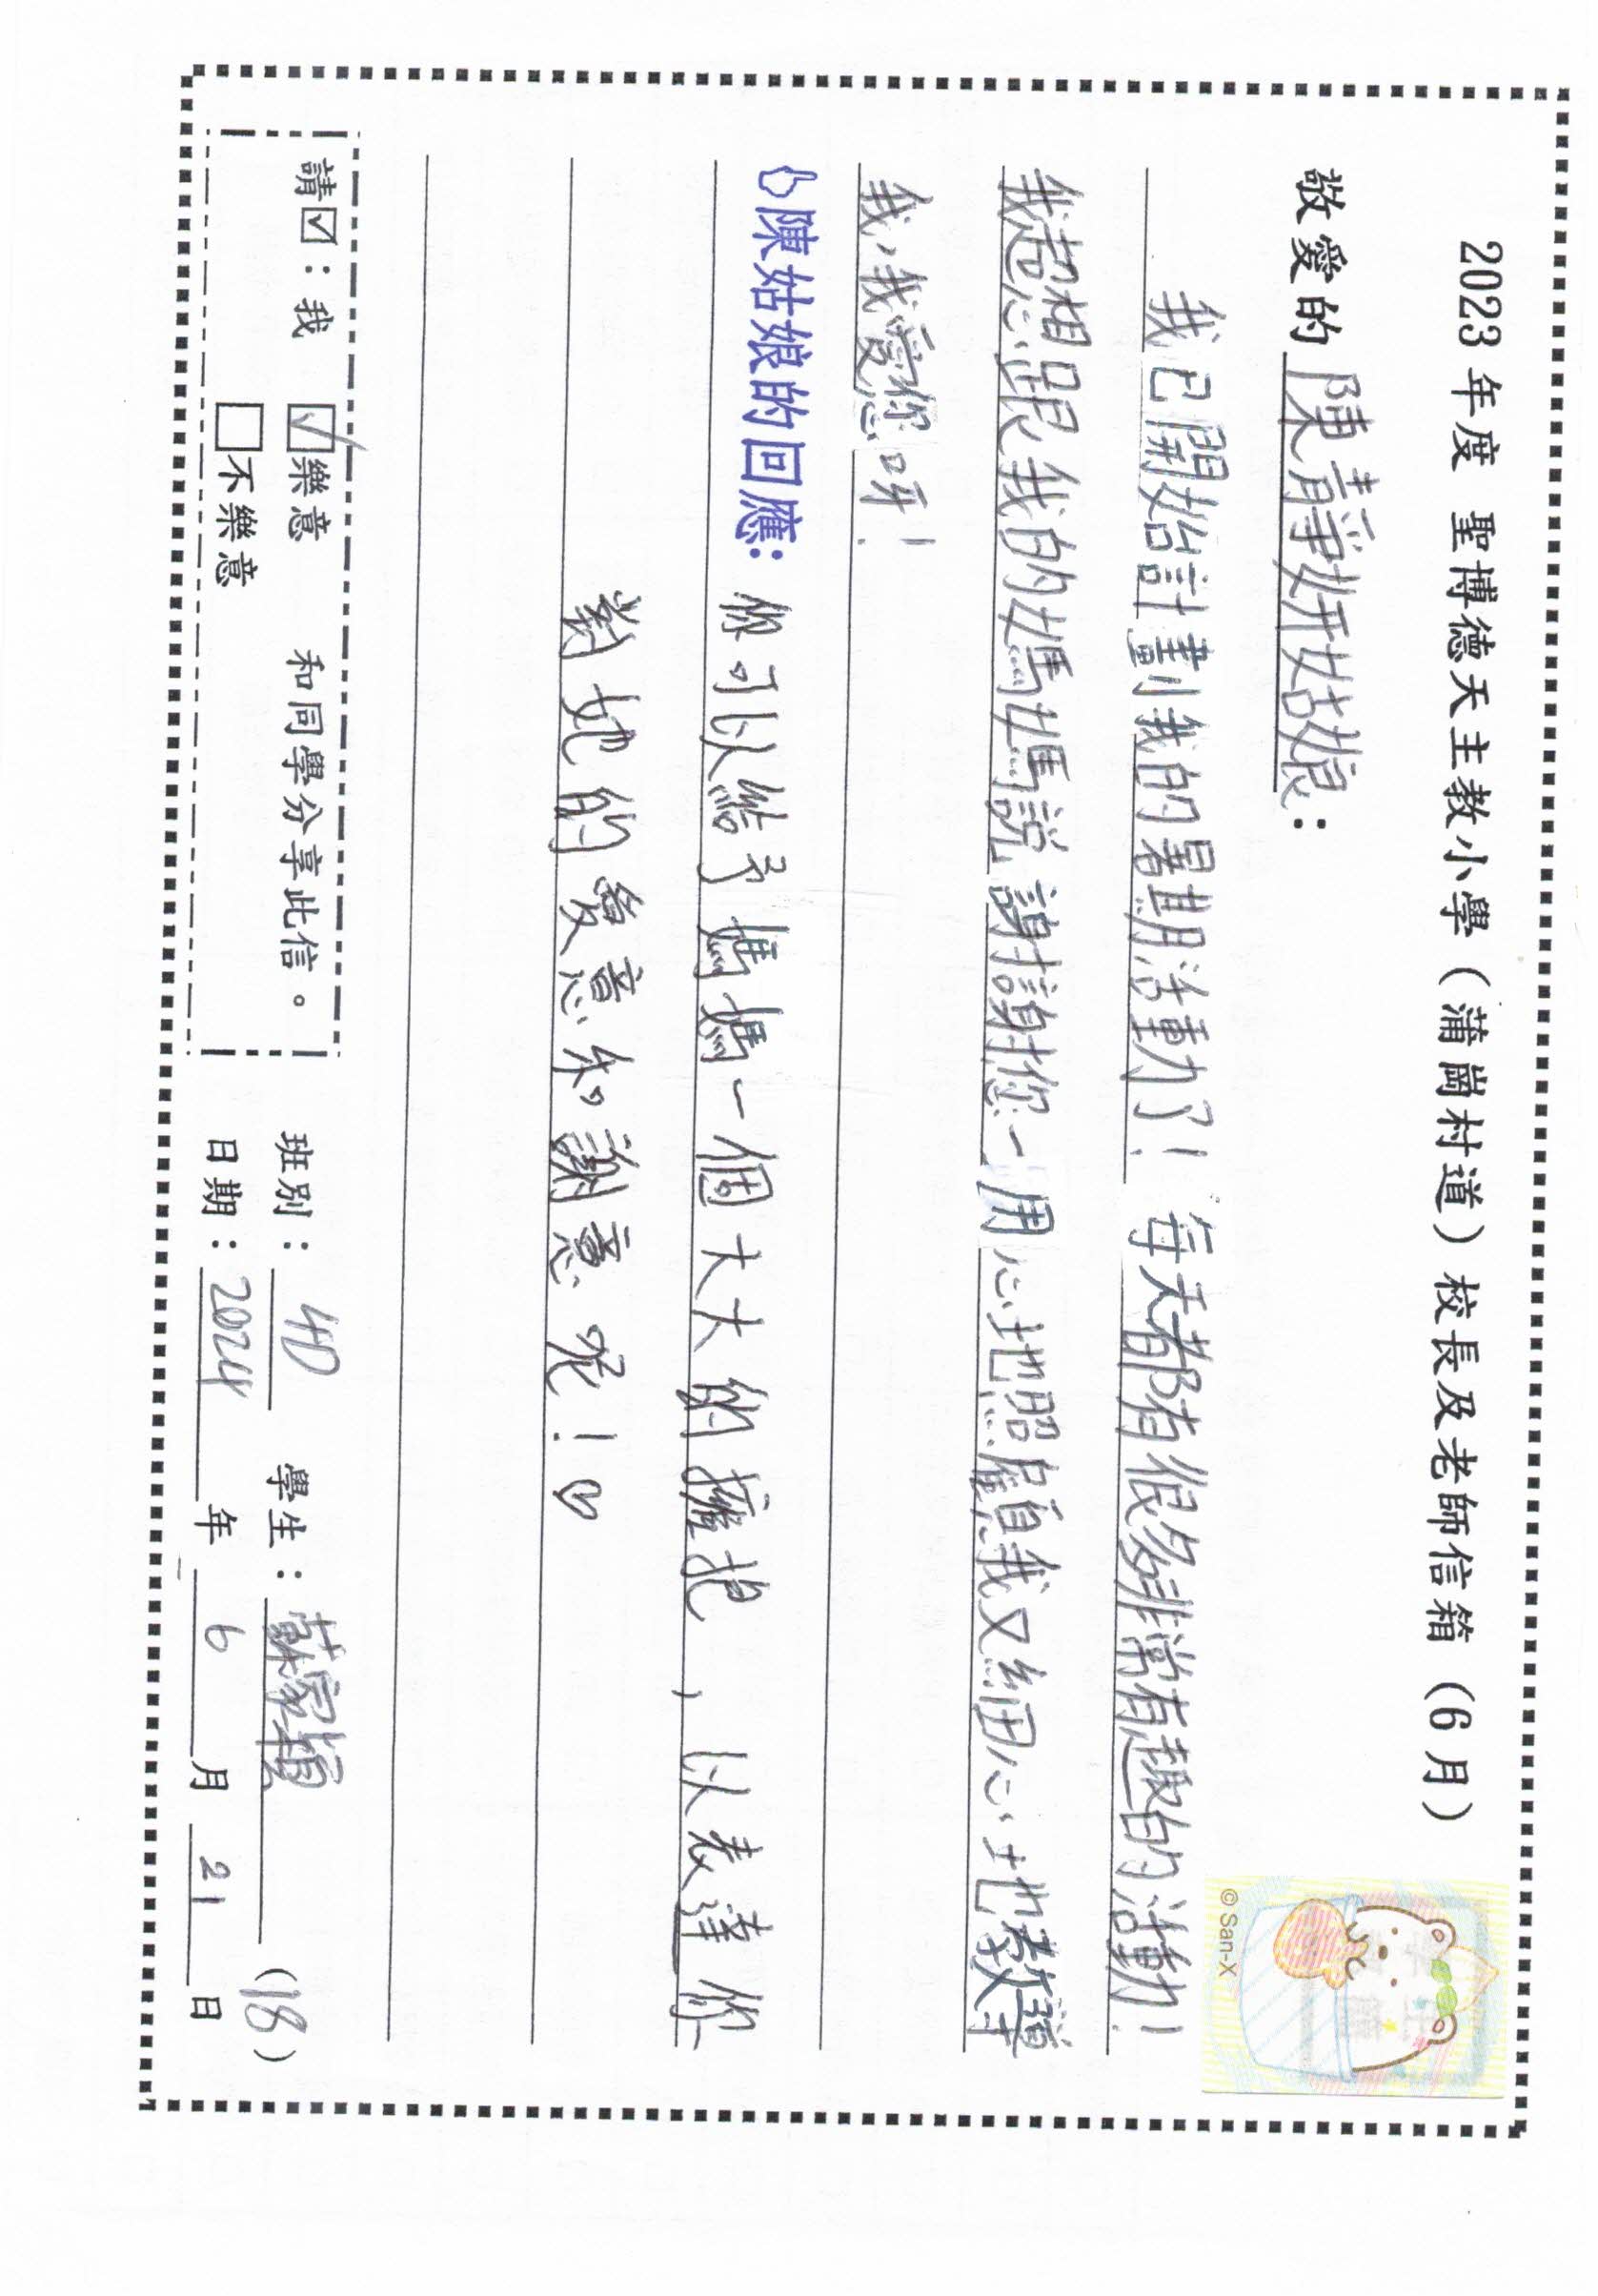 2023 年度 聖博德天主教小學（蒲崗村道）校長及老師信箱（6 月）
敬愛的 陳靜妍姑娘：
我已開始計劃我的暑期活動了！每天都有很多非常有趣的活動！
我超想跟我的媽媽說謝謝您一用心地照顧我又細心地教導
我，我愛您呀！
陳姑娘的回應：你可以給予媽媽一個大大的擁抱，以表達你
對她的愛意和謝意呢！♡
請☑：我 ☑樂意 和同學分享此信。
□不樂意
班別：4D 學生：蘇家穎 (18)
日期：2024 年 6 月 21 日
© San-X